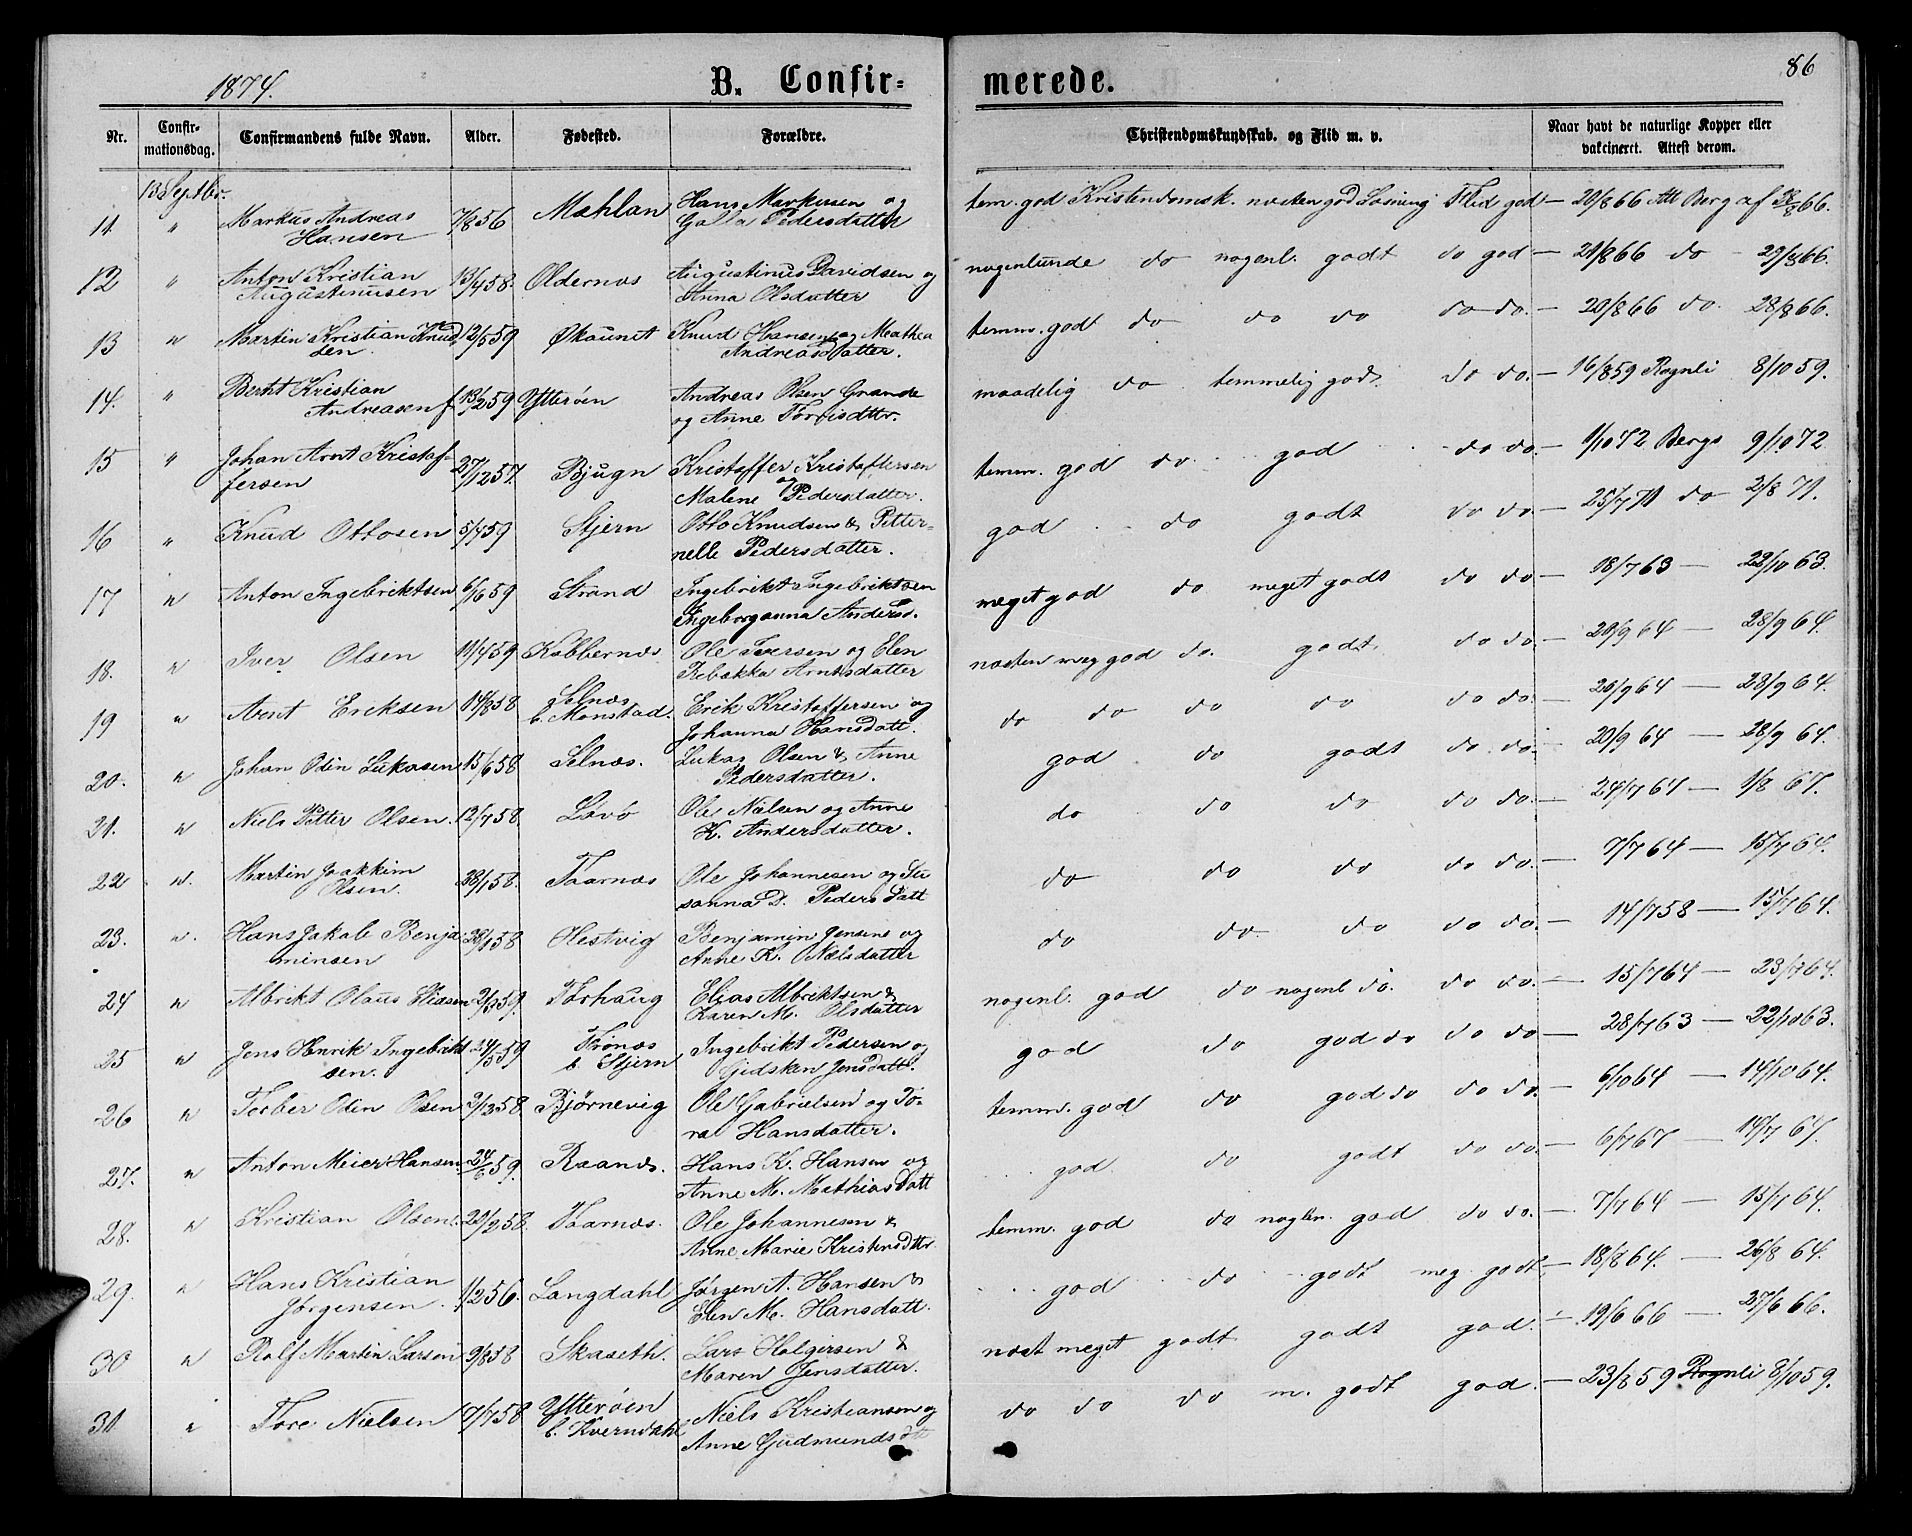 1874.
B. Confir-
merede.
86
Nr.
Confir-
mationsdag.
Confirmandens fulde Navn.
Alder.
Fødested.
Forældre.
Christendomskundskab. og Flid m. v.
Naar havt de naturlige Kopper eller
vakcineret. Attest derom.
13 Septbr.
11 " Markus Andreas 7/8 56 Mæhlan Hans Markusen og tem. god Kristendomsk. næsten god Læsning Flid god — 20/8 66 Att Berg af
Hansen Pedersdatter
12 " Anton Kristian 13/4 58. Oldernæs Augustinus Davidsen og nogenlunde do nogenl. godt do god — 21/8 66 do — 29/8 66.
Augustinusen Anna Olsdatter
13 " Martin Kristian Knud 12/5 59 Økaunet Knud Hansen og Mathea temm. godt do do do do do. — 20/8 66 do. 28/8 66.
sen. Andreasdatter.
14. " Berht Kristian 13/2 59 Ytterøen Andreas Olsen Grande maadelig do temmelig god. do do. — 16/8 59 Rognli 8/10 59.
Andreasen og Anne
15 " Johan Arnt Kristof- 27/12 57. Bjugn Kristoffer Kristoffersen temm. god do god do do — 1/10 72 Bergs 9/10 72
fersen og Malene Pedersdatter.
16 " Knud Ottosen 5/4 59 Stjern Otto Knudsen & Petter- god do godt do do. — 25/7 71 do 2/8 71.
nelle Pedersdatter.
17 " Anton Ingebriktsen 6/6 59 Strand Ingebrikt Ingebriktsen meget god do meget godt do do — 18/7 63 — 22/10 63.
Ingeborganna Andersd.
18. " Iver Olsen 11/4 59 Kobbernæs Ole Iversen og Elen næsten meg god do. godt. do do. — 20/9 64 — 28/9 64.
Rebækka Arntsdatter
19 " Arnt Eriksen 14/8 58 Selnæs Erik Kristoffersen og do do do do do do. — 26/9 64 — 28/9 64.
b. Monstad. Johanna Hansdatt.
20. " Johan Odin Lukasen 15/6 58 Selnæs. Lukas Olsen & Anne god do godt do do 20/9 64 — 28/9 64.
Pedersdatter.
21. " Niels Petter Olsen. 12/7 58 Løvø Ole Nielsen og Anne do do do do do. — 24/7 67 — 1/8 67.
K. Andersdatter.
22 " Martin Joakkim 28/1 58. Taarnæs Ole Johannesen og Su do do do do do. — 7/7 64 — 15/7 64.
Olsen. sanna D. Pedersdatt
23. " Hans Jakob Benja 28/1 58 Hestvig Benjamin Jensen og do do do do do. — 14/7 58 — 15/7 64.
minsen Anne K. Nielsdatter
24 " Albrikt Olaus Eliasen 2/3 59. Torhaug Elias Albriktsen & nogenl. god do nogenl do. do do. — 15/7 64 — 23/7 64.
Karen M. Olsdatter
25 " Jens Henrik Ingebrikt 24/3 59 Tronæs Ingebrikt Pedersen og god do god do do do — 28/7 63 — 22/10 63.
sen. b. Stjern Gidsken Jensdatt.
26 " Torber Odin Olsen 2/12 58. Bjørnevig Ole Gabrielsen og To- temm. god do god do do do. — 6/10 64 — 14/10 64.
ra Hansdatter.
27. " Anton Meier Hansen. 24/6 59. Raanæs. Hans K. Hansen og god do godt do do. — 6/7 67 — 14/7 67.
Anne M. Mathiasdatt
28. " Kristian Olsen. 20/2 58. Taarnæs. Ole Johannesen & temm. god do noglen. god do do. — 7/7 64 — 15/7 64.
Anne Marie Kristensdttr
29. " Hans Kristian 1/12 56. Langdahl Jørgen A. Hansen & god do godt meg godt. — 18/8 64. — 26/8 64.
Jørgensen. Elen M. Hansdatt.
30 " Rolf Martin Larsen 9/8 58 Skaseth. Lars Holgersen & næst meget godt godt god. — 19/6 66 — 27/6 66.
Maren Jensdatter.
31 " Tore Nielsen 7/7 58 Ytterøen Niels Kristiansen og do do do m. godt god. — 23/8 59 Rognli 8/10 59.
b. Kverndahl Anne Gudmundsdtt